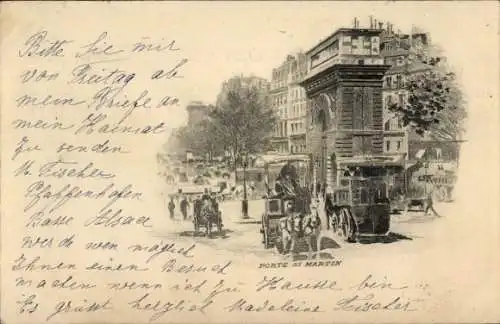 Bitte Sie mir
von Freitag ab
mein Briefe an
mein Heimat
zu senden
M. Fischer
Pfaffenhofen
Basse Alsace
werde wen möglich
Ihnen einen Besuch
machen wenn ich zu Hause bin
Es grüsst herzlich Madeleine Fischer
PORTE ST MARTIN